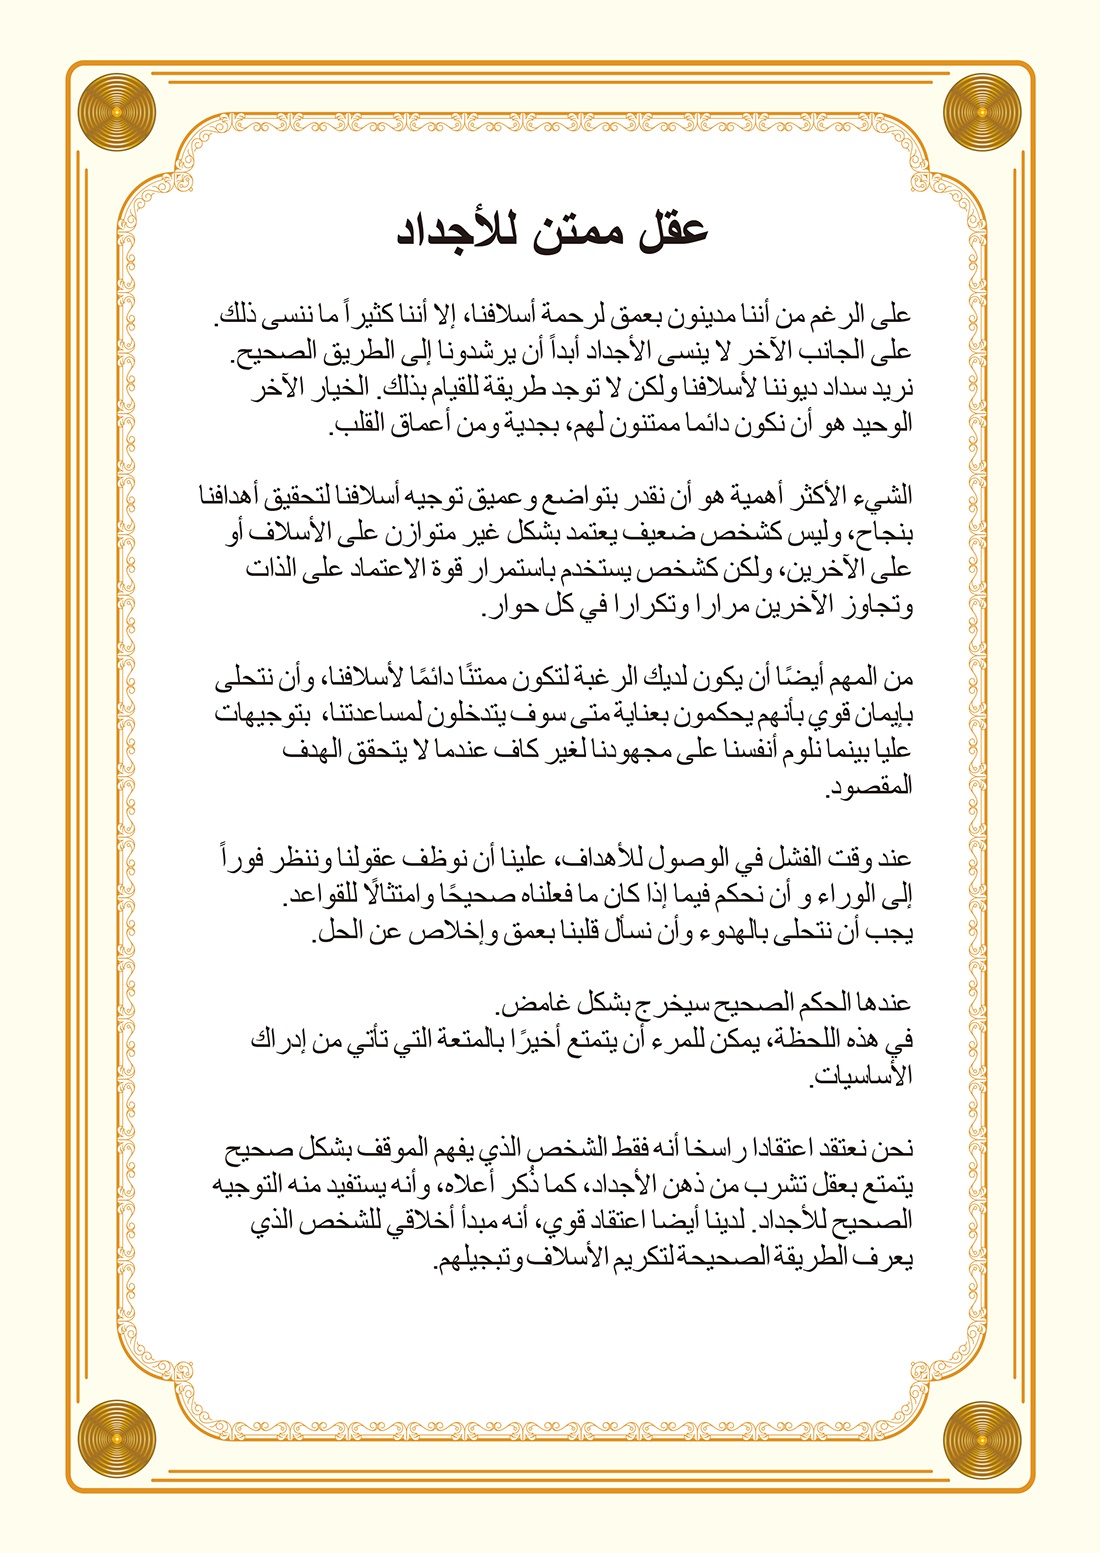 عقل ممتن للأجداد
على الرغم من أننا مدينون بعمق لرحمة أسلافنا، إلا أننا كثيراً ما ننسى ذلك.
على الجانب الآخر لا ينسى الأجداد أبداً أن يرشدونا إلى الطريق الصحيح.
نريد سداد ديوننا لأسلافنا ولكن لا توجد طريقة للقيام بذلك. الخيار الآخر
الوحيد هو أن نكون دائما ممتنون لهم، بجدية ومن أعماق القلب.
الشيء الأكثر أهمية هو أن نقدر بتواضع وعميق توجيه أسلافنا لتحقيق أهدافنا
بنجاح، وليس كشخص ضعيف يعتمد بشكل غير متوازن على الأسلاف أو
على الآخرين، ولكن كشخص يستخدم باستمرار قوة الاعتماد على الذات
وتجاوز الآخرين مرارا وتكرارا في كل حوار.
من المهم أيضًا أن يكون لديك الرغبة لتكون ممتنًا دائمًا لأسلافنا، وأن نتحلى
بإيمان قوي بأنهم يحكمون بعناية متى سوف يتدخلون لمساعدتنا، بتوجيهات
عليا بينما نلوم أنفسنا على مجهودنا لغير كاف عندما لا يتحقق الهدف
المقصود.
عند وقت الفشل في الوصول للأهداف، علينا أن نوظف عقولنا وننظر فوراً
إلى الوراء و أن نحكم فيما إذا كان ما فعلناه صحيحًا وامتثالًا للقواعد.
يجب أن نتحلى بالهدوء وأن نسأل قلبنا بعمق وإخلاص عن الحل.
عندها الحكم الصحيح سيخرج بشكل غامض.
في هذه اللحظة، يمكن للمرء أن يتمتع أخيرًا بالمتعة التي تأتي من إدراك
الأساسيات.
نحن نعتقد اعتقادا راسخا أنه فقط الشخص الذي يفهم الموقف بشكل صحيح
يتمتع بعقل تشرب من ذهن الأجداد، كما ذُكر أعلاه، وأنه يستفيد منه التوجيه
الصحيح للأجداد. لدينا أيضا اعتقاد قوي، أنه مبدأ أخلاقي للشخص الذي
يعرف الطريقة الصحيحة لتكريم الأسلاف وتبجيلهم.